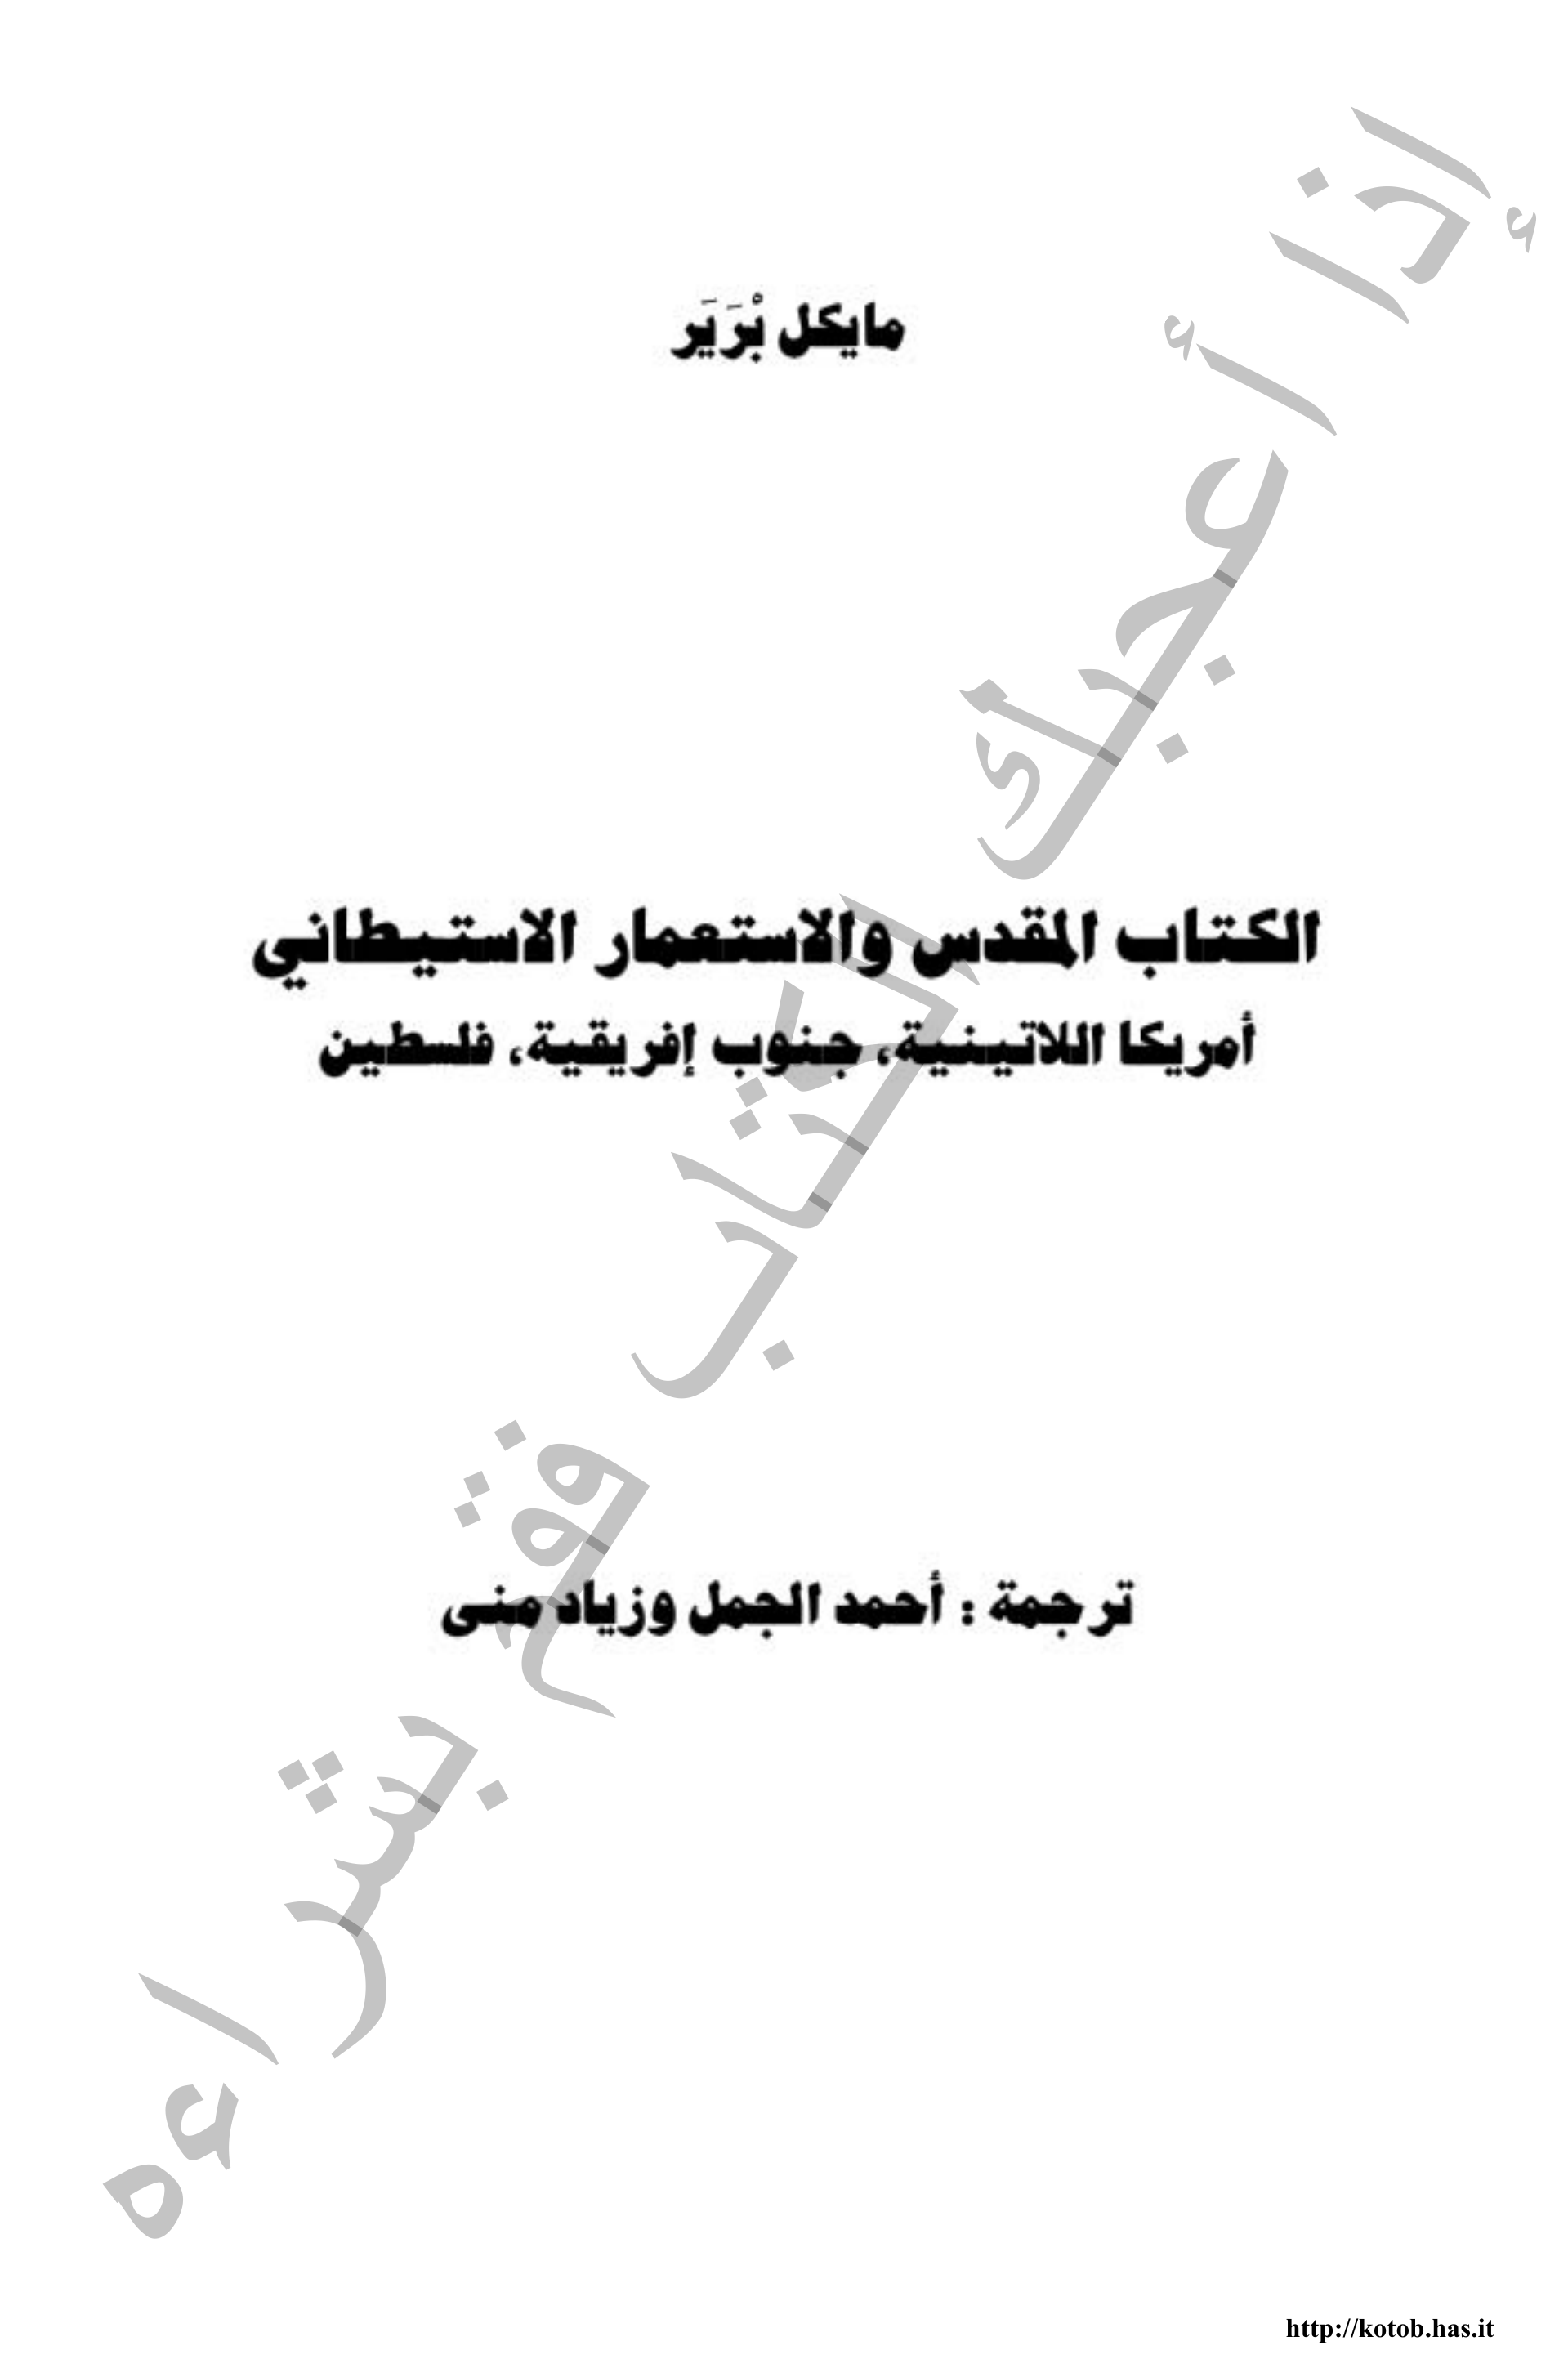 مايكل بْرَيَر
الكتاب المقدس والاستعمار الاستيطاني
أمريكا اللاتينية، جنوب إفريقية، فلسطين
ترجمة : أحمد الجمل وزياد منى
إذا أعجبك الكتاب فقم بشراءه
http://kotob.has.it